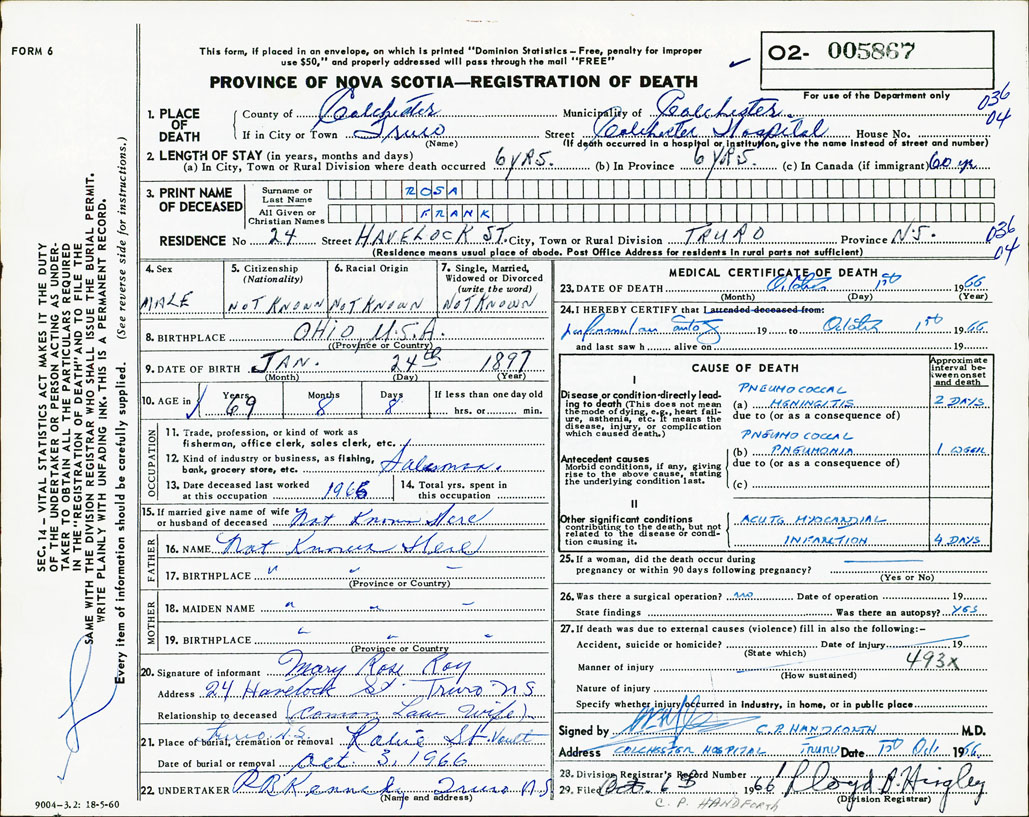 FORM 6
This form, if placed in an envelope, on which is printed "Dominion Statistics – Free, penalty for improper
use $50," and properly addressed will pass through the mail "FREE"
O2- 005867
For use of the Department only
PROVINCE OF NOVA SCOTIA—REGISTRATION OF DEATH
036
04
1. PLACE OF DEATH
County of Colchester Municipality of Colchester
If in City or Town Truro Street Colchester Hospital House No.
(Name) (If death occurred in a hospital or institution, give the name instead of street and number)
2. LENGTH OF STAY (in years, months and days)
(a) In City, Town or Rural Division where death occurred 6 YRS. (b) In Province 6 YRS. (c) In Canada (if immigrant) 60 yr
3. PRINT NAME OF DECEASED
Surname or Last Name ROSA
All Given or Christian Names FRANK
RESIDENCE No 24 Street HAVELOCK ST. City, Town or Rural Division TRURO Province N.S.
036
04
(Residence means usual place of abode. Post Office Address for residents in rural parts not sufficient)
4. Sex MALE
5. Citizenship (Nationality) NOT KNOWN
6. Racial Origin NOT KNOWN
7. Single, Married, Widowed or Divorced (write the word) NOT KNOWN
8. BIRTHPLACE OHIO U.S.A.
(Province or Country)
9. DATE OF BIRTH JAN. 24th 1897
(Month) (Day) (Year)
10. AGE in Years 69 Months 8 Days 8 If less than one day old hrs. or min.
OCCUPATION
11. Trade, profession, or kind of work as
fisherman, office clerk, sales clerk, etc.
12. Kind of industry or business, as fishing,
bank, grocery store, etc. Salesman.
13. Date deceased last worked at this occupation 1966
14. Total yrs. spent in this occupation
15. If married give name of wife
or husband of deceased Not Known Here
FATHER
16. NAME Not Known Here
17. BIRTHPLACE " " "
(Province or Country)
MOTHER
18. MAIDEN NAME " " "
19. BIRTHPLACE " " "
(Province or Country)
20. Signature of informant Mary Rose Roy
Address 24 Havelock St. Truro N.S
Relationship to deceased (Comon Law Wife)
Truro N.S.
21. Place of burial, cremation or removal Robie St. Vault
Date of burial or removal Oct. 3, 1966
22. UNDERTAKER Truro N.S
(Name and address)
9004-3.2: 18-5-60
SEC. 14 – VITAL STATISTICS ACT MAKES IT THE DUTY
OF THE UNDERTAKER OR PERSON ACTING AS UNDER-
TAKER TO OBTAIN ALL THE PARTICULARS REQUIRED
IN THE "REGISTRATION OF DEATH" AND TO FILE THE
SAME WITH THE DIVISION REGISTRAR WHO SHALL ISSUE THE BURIAL PERMIT.
WRITE PLAINLY WITH UNFADING INK. THIS IS A PERMANENT RECORD.
Every item of information should be carefully supplied. (See reverse side for instructions.)
MEDICAL CERTIFICATE OF DEATH
23. DATE OF DEATH October 1st 1966
(Month) (Day) (Year)
24. I HEREBY CERTIFY that I attended deceased from:
19 to October 1st 1966
and last saw h alive on 19
CAUSE OF DEATH
Approximate interval between onset and death
I
Disease or condition directly leading to death (This does not mean the mode of dying, e.g., heart failure, asthenia, etc. It means the disease, injury, or complication which caused death.)
PNEUMOCOCCAL
(a) MENINGITIS 2 DAYS
due to (or as a consequence of)
PNEUMOCOCCAL
(b) PNEUMONIA 1 WEEK
Antecedent causes
Morbid conditions, if any, giving rise to the above cause, stating the underlying condition last.
due to (or as a consequence of)
(c)
II
Other significant conditions
contributing to the death, but not related to the disease or condition causing it.
ACUTE MYOCARDIAL
INFARCTION 4 DAYS
25. If a woman, did the death occur during
pregnancy or within 90 days following pregnancy?
(Yes or No)
26. Was there a surgical operation? no Date of operation 19
State findings Was there an autopsy? YES
27. If death was due to external causes (violence) fill in also the following:–
Accident, suicide or homicide? Date of injury 19
(State which) 493X
Manner of injury
(How sustained)
Nature of injury
Specify whether injury occurred in industry, in home, or in public place
Signed by C.P. HANDFORTH M.D.
Address COLCHESTER HOSPITAL TRURO Date 1st Oct. 1966
28. Division Registrar's Record Number
29. Filed Oct. 6 1966 Lloyd B. Higley
(Division Registrar)
C. P. HANDFORTH